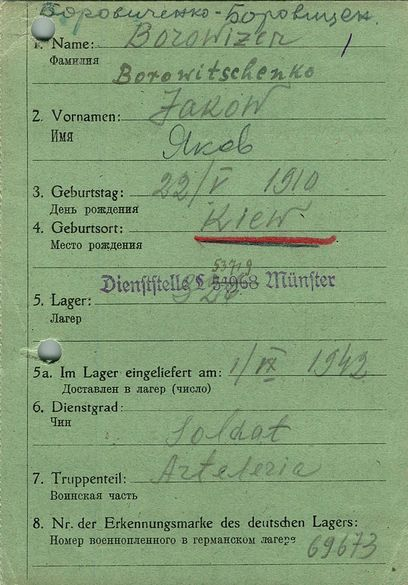 Боровиченко-Боровицен.
1. Name: Borowizen
Фамилия
Borowitschenko
2. Vornamen: Jakow
Имя
Яков
3. Geburtstag: 22/V 1910
День рождения
4. Geburtsort: Kiew
Место рождения
53719
Dienststelle L 51968 Münster
5. Lager: 326
Лагер
5a. Im Lager eingeliefert am: 1/IX 1942
Доставлен в лагер (число)
6. Dienstgrad:
Чин
Soldat
7. Truppenteil: Arteleria
Воинская часть
8. Nr. der Erkennungsmarke des deutschen Lagers:
Номер военнопленного в германском лагере 69673